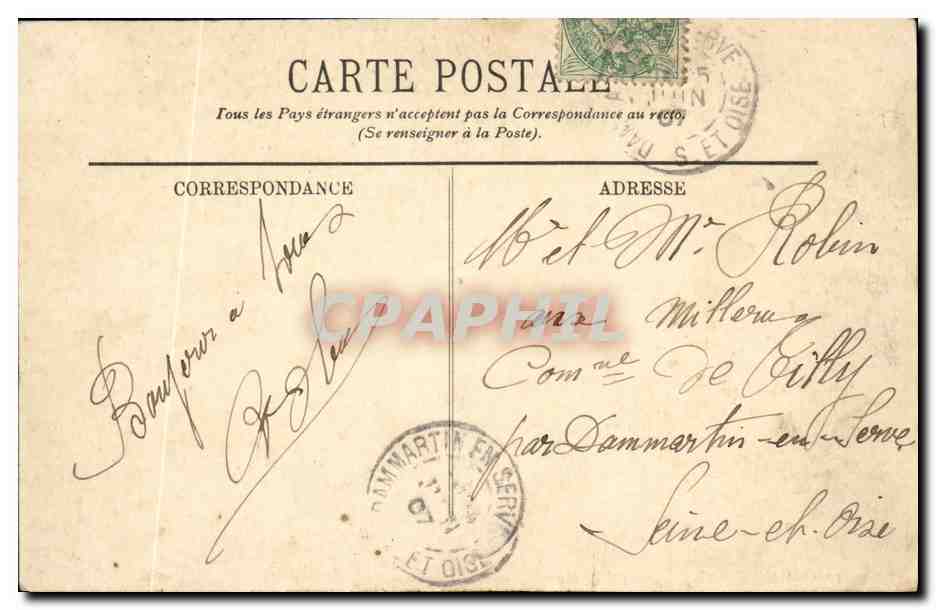 CARTE POSTALE
Tous les Pays étrangers n'acceptent pas la Correspondance au recto.
(Se renseigner à la Poste).
CORRESPONDANCE
ADRESSE
Bonjour à tous
Mr et Mme Robin
aux Millerus
Comne de Tilly
par Dammartin-en-Serve
Seine-et-Oise
DAMMARTIN EN SERVE
07
ET OISE
S. ET OISE
07
CPAPHIL